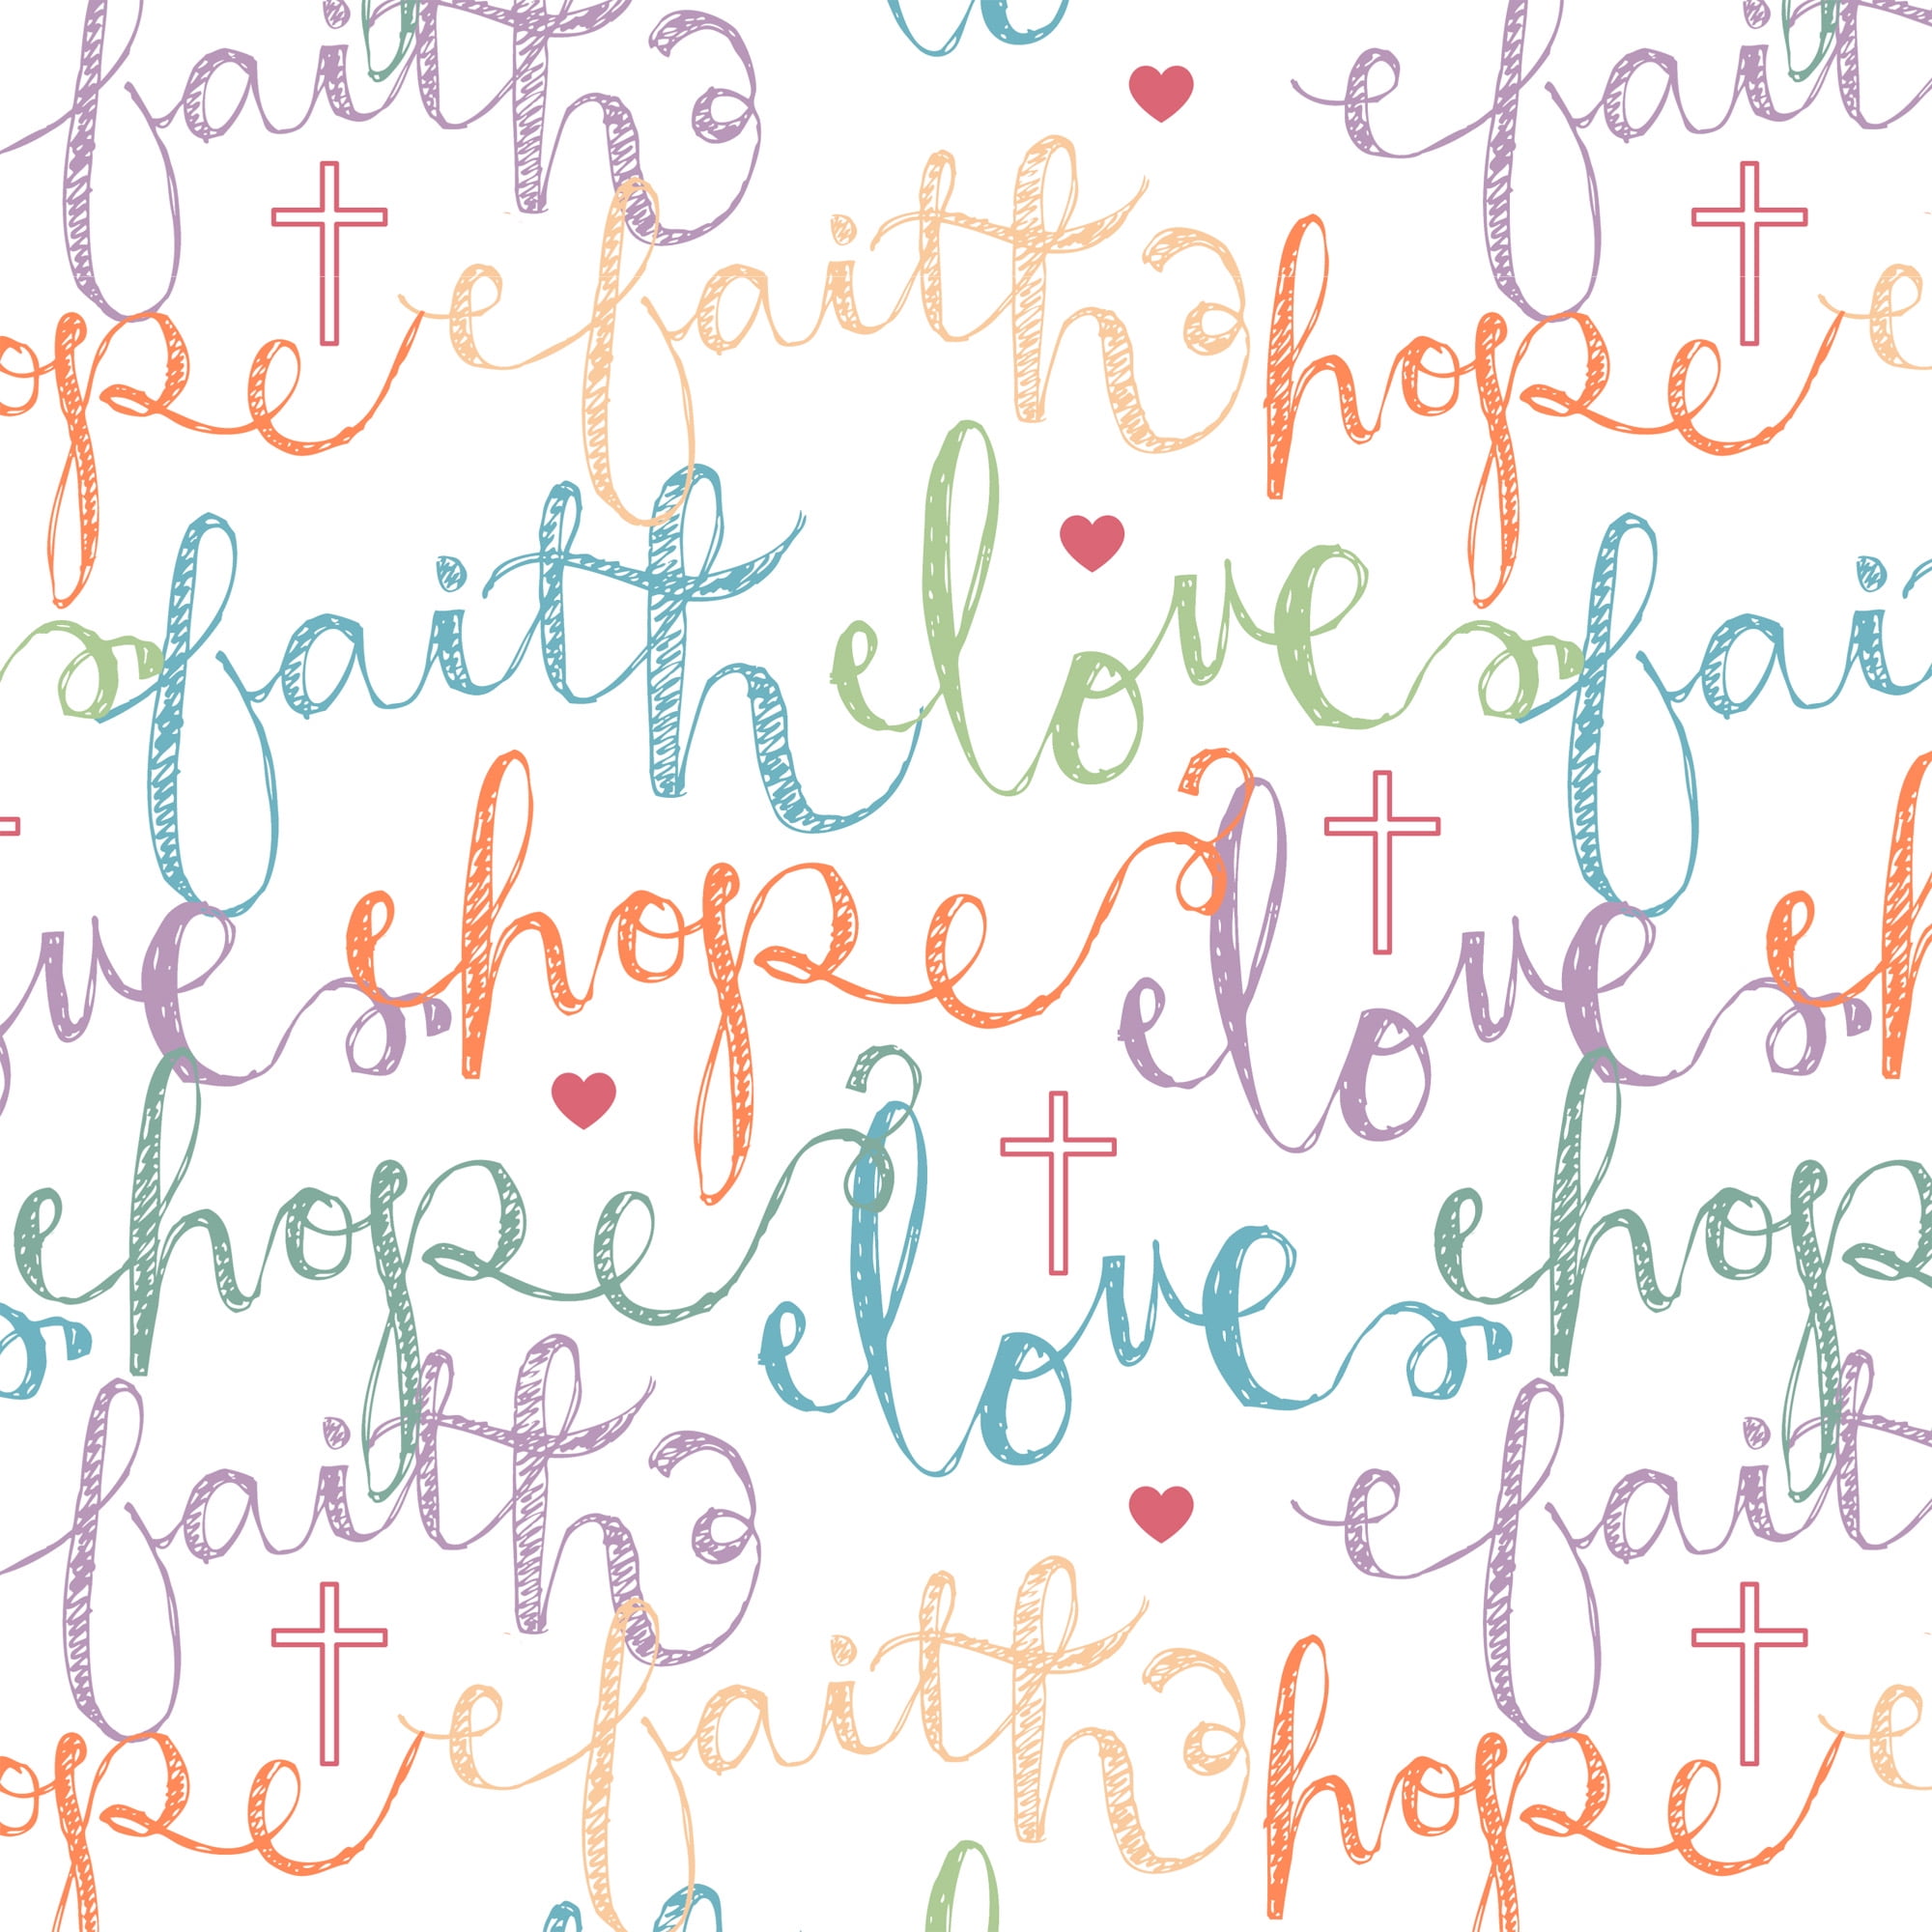 faith fait
ope faith hope
faith love fai
ve hope love h
hope love hop
faith fait
ope faith hope